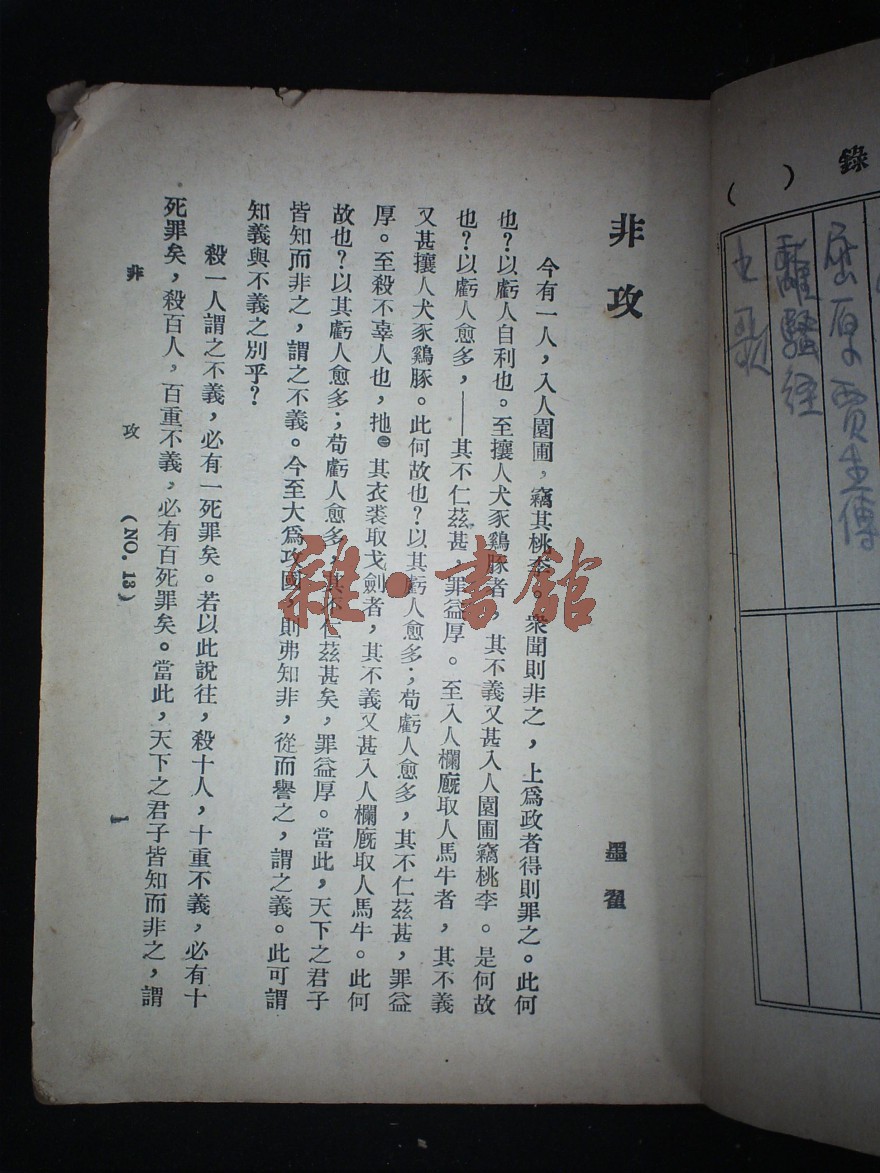 錄
（　）
屈原賈生傳
離騷經
九歌
非攻
墨翟
今有一人，入人園圃，竊其桃李。衆聞則非之，上爲政者得則罪之。此何
也？以虧人自利也。至攘人犬豕鷄豚者，其不義又甚入人園圃竊桃李。是何故
也？以虧人愈多，——其不仁茲甚，罪益厚。至入人欄廐取人馬牛者，其不義
又甚攘人犬豕鷄豚。此何故也？以其虧人愈多；苟虧人愈多，其不仁茲甚，罪益
厚。至殺不辜人也，扡㊀其衣裘取戈劍者，其不義又甚入人欄廐取人馬牛。此何
故也？以其虧人愈多；苟虧人愈多，其不仁茲甚矣，罪益厚。當此，天下之君子
皆知而非之，謂之不義。今至大爲攻國，則弗知非，從而譽之，謂之義。此可謂
知義與不義之別乎？
殺一人謂之不義，必有一死罪矣。若以此說往，殺十人，十重不義，必有十
死罪矣，殺百人，百重不義，必有百死罪矣。當此，天下之君子皆知而非之，謂
非　攻　（NO. 13）　1
雜·書館